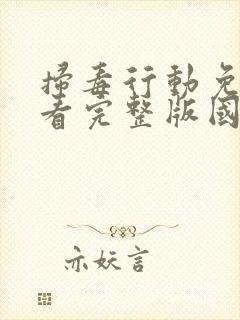 掃毒行動免
看完整版國
亦妖言